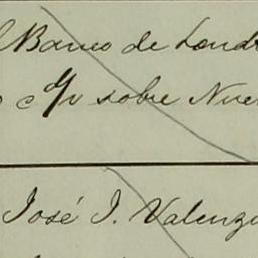 l Banco de Lond
sobre Nue
José J. Valenzu